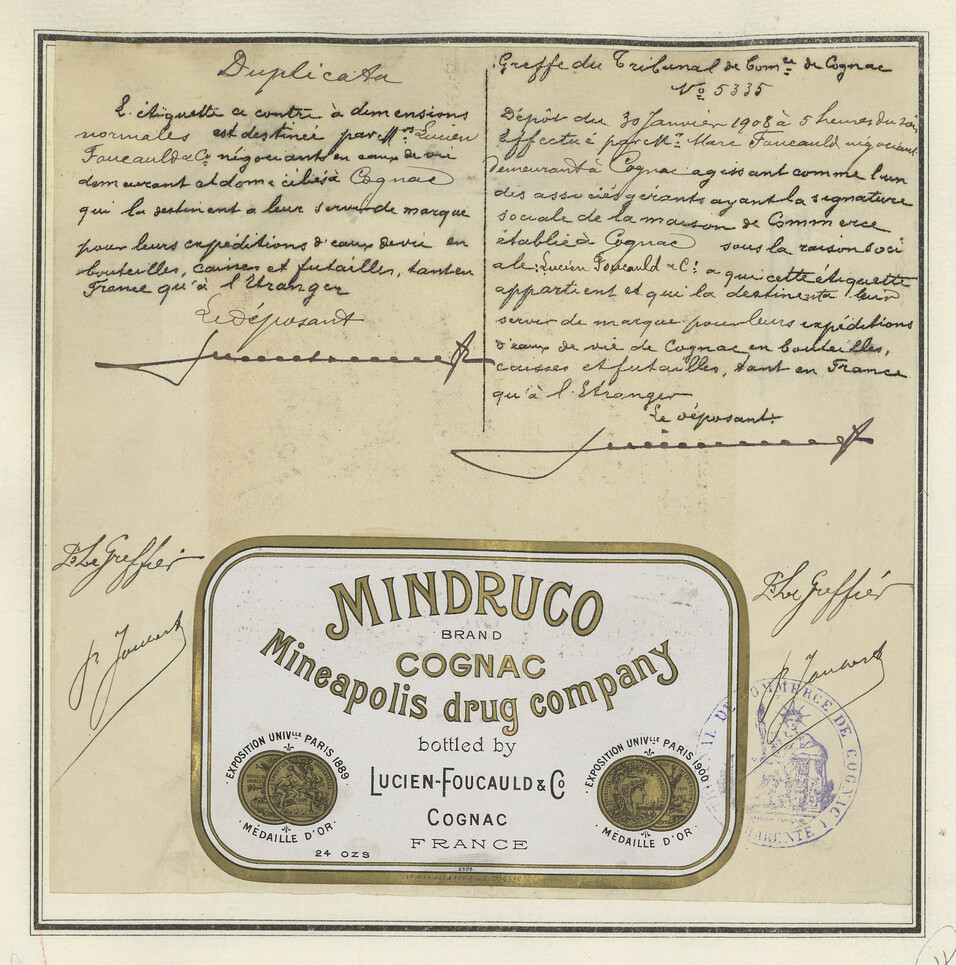 Duplicata
L'étiquette ci contre à dimensions
normales est destinée par Mrs Lucien
Foucauld & Co négociants en eaux de vie
demeurant et domiciliés à Cognac
qui la destinent a leur servir de marque
pour leurs expéditions d'eaux de vie en
bouteilles, caisses et futailles, tant en
France qu'à l'Etranger
Le déposant
Greffe du Tribunal de Comce de Cognac
No 5335
Dépôt du 30 Janvier 1908 à 5 heures du soir
Effectué par Mr Marc Foucauld négociant
demeurant à Cognac agissant comme l'un
des associés gérants ayant la signature
sociale de la maison de Commerce
établie à Cognac sous la raison soci
ale: Lucien Foucauld & Co a qui cette étiquette
appartient et qui la destinent à leur
servir de marque pour leurs expéditions
d'eaux de vie de Cognac en bouteilles,
caisses et futailles, tant en France
qu'à l'Etranger
Le déposant
P. Le Greffier
P. Le Greffier
MINDRUCO
BRAND
COGNAC
Mineapolis drug company
bottled by
LUCIEN-FOUCAULD & Co
COGNAC
FRANCE
EXPOSITION UNIVLLE PARIS 1889
MÉDAILLE D'OR
EXPOSITION UNIVLLE PARIS 1900
MÉDAILLE D'OR
24 OZS
DE COMMERCE DE COGNAC
CHARENTE